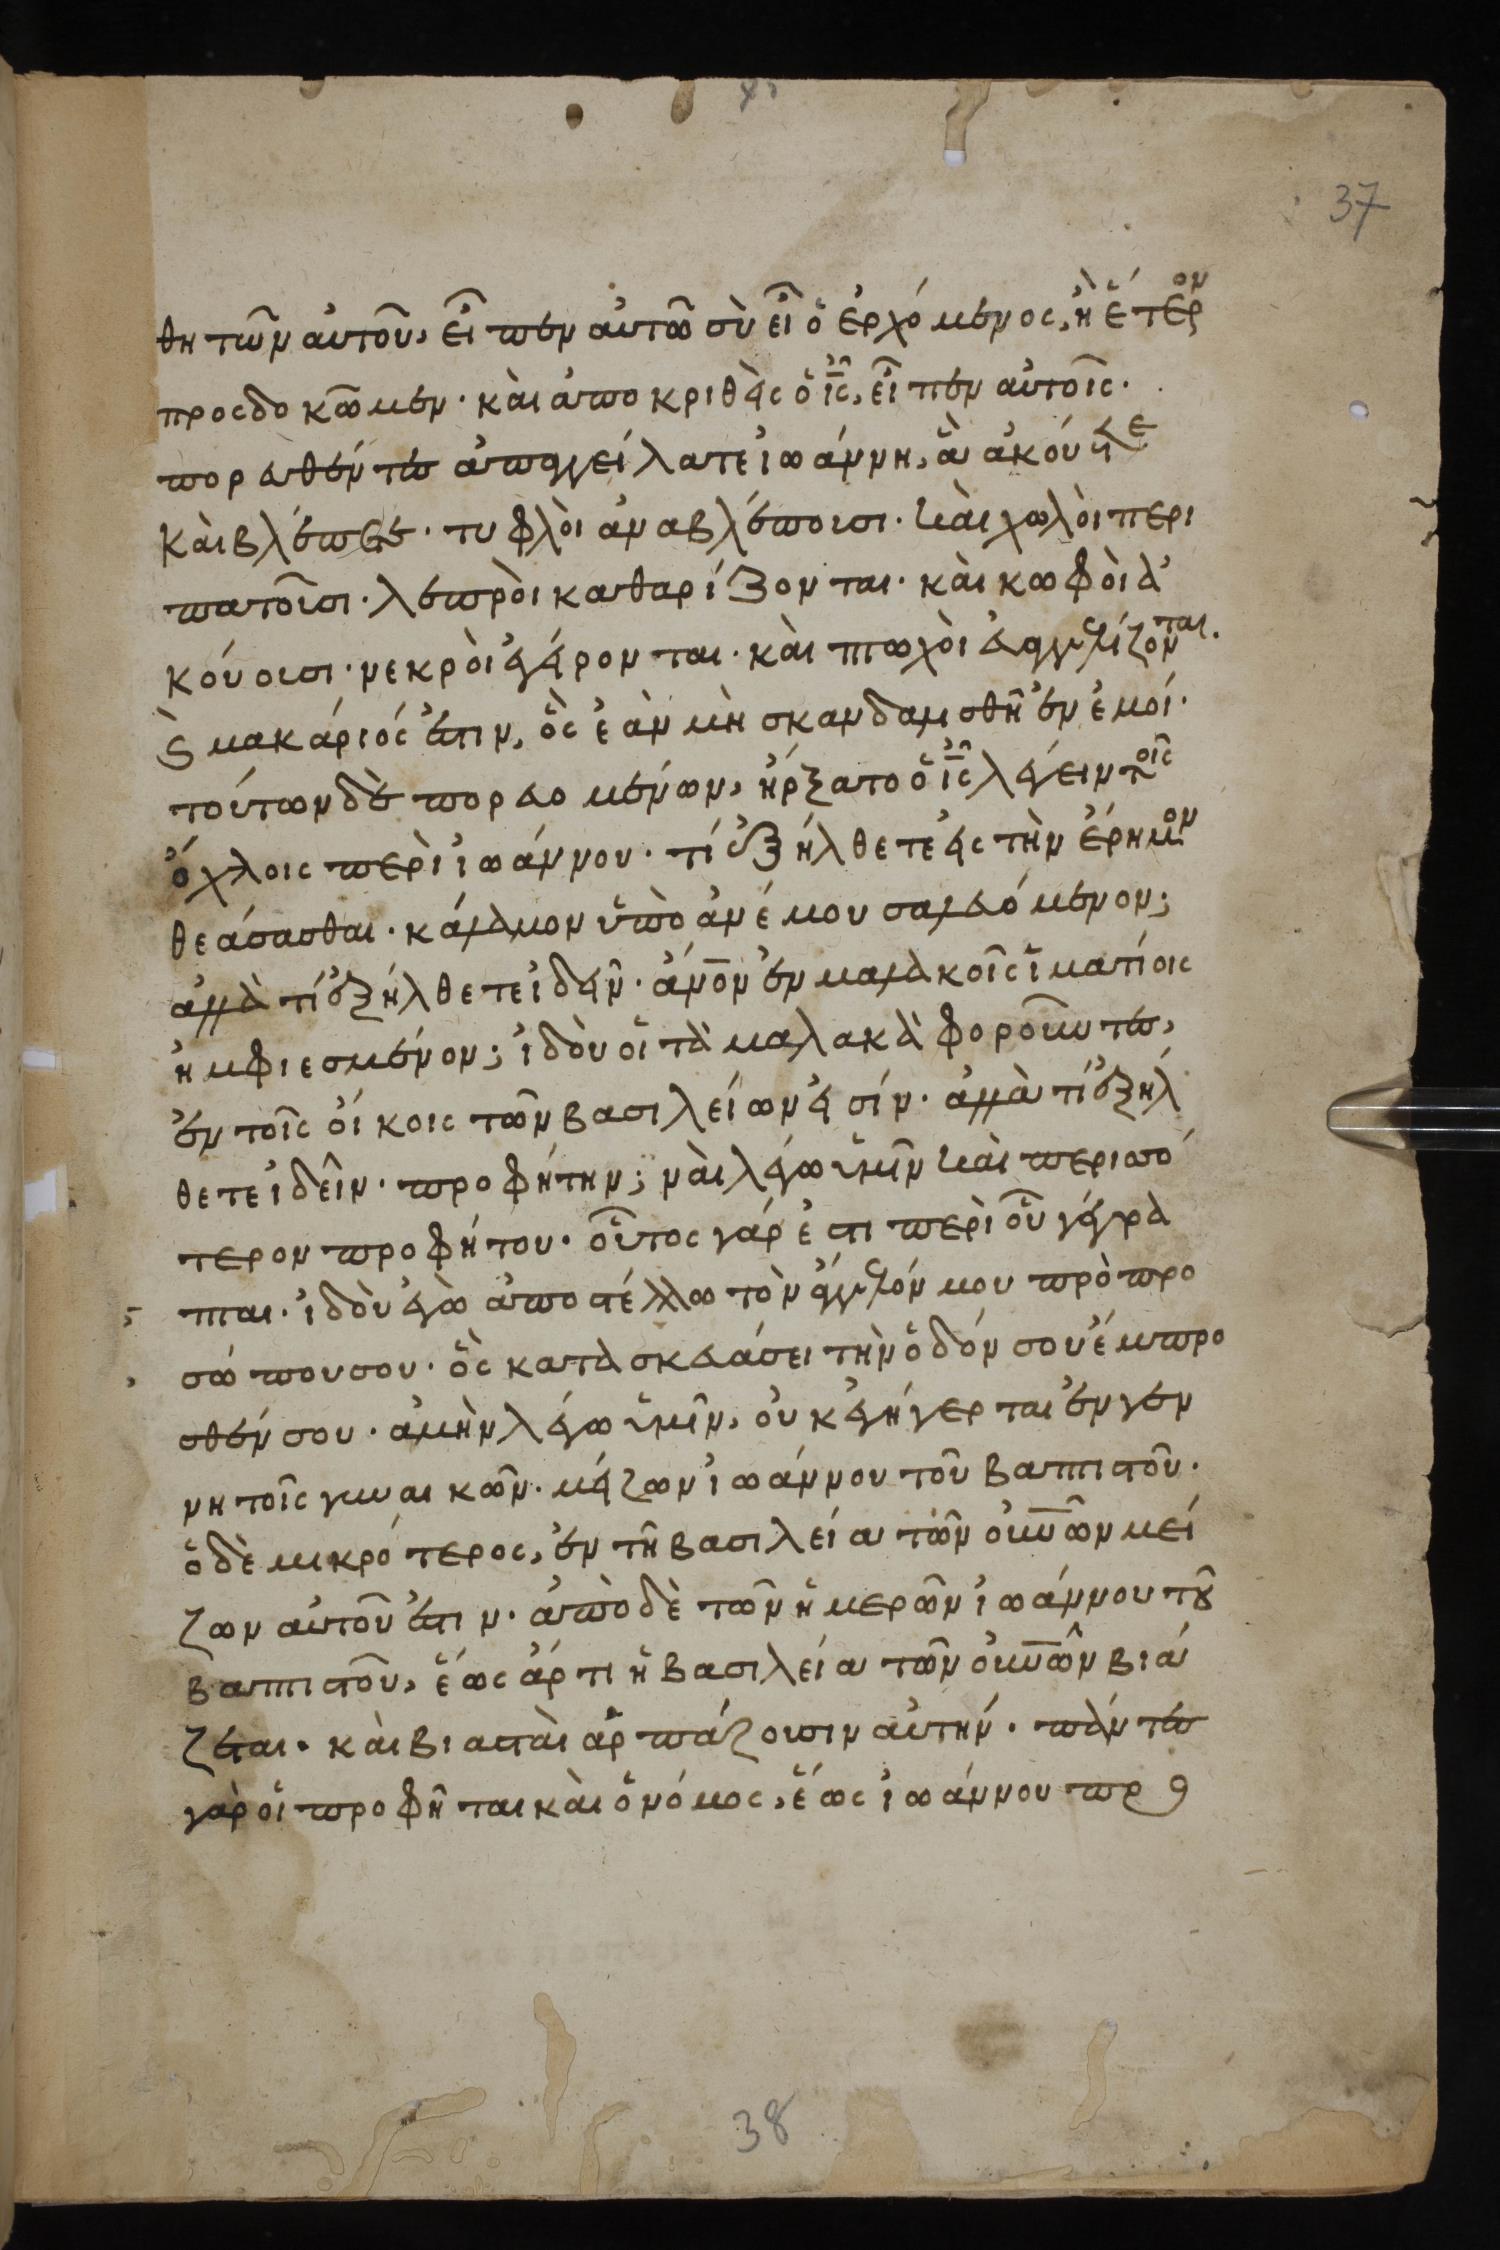 37
θητῶν αὐτοῦ, εἶπεν αὐτῶ σὺ εἶ ὁ ἐρχόμενος, ἢ ἕτερον
προσδοκῶμεν. καὶ ἀποκριθεὶς ὁ ις, εἶπεν αὐτοῖς.
πορευθέντες ἀπαγγείλατε ἰωάννη, ἃ ἀκούετε
καὶ βλέπετε. τυφλοὶ ἀναβλέπουσι. καὶ χωλοὶ περι
πατοῦσι. λεπροὶ καθαρίζονται. καὶ κωφοὶ ἀ
κούουσι. νεκροὶ ἐγείρονται. καὶ πτωχοὶ εὐαγγελίζονται.
καὶ μακάριός ἐστιν, ὃς ἐὰν μὴ σκανδαλισθῆ ἐν ἐμοί.
τούτων δὲ πορευομένων, ἤρξατο ὁ ις λέγειν τοῖς
ὄχλοις περὶ ἰωάννου. τί ἐξήλθετε εἰς τὴν ἔρημον
θεάσασθαι. κάλαμον ὑπὸ ἀνέμου σαλευόμενον;
ἀλλὰ τί ἐξήλθετε ἰδεῖν. ἄνον ἐν μαλακοῖς ἱματίοις
ἠμφιεσμένον; ἰδοὺ οἱ τὰ μαλακὰ φοροῦντες,
ἐν τοῖς οἴκοις τῶν βασιλείων εἰσίν. ἀλλὰ τί ἐξήλ
θετε ἰδεῖν. προφήτην; ναὶ λέγω ὑμῖν καὶ περισσό
τερον προφήτου. οὗτος γάρ ἐστι περὶ οὗ γέγρα
πται. ἰδοὺ ἐγὼ ἀποστέλλω τὸν ἄγγελόν μου πρὸ προ
σώπου σου. ὃς κατασκευάσει τὴν ὁδόν σου ἔμπρο
σθέν σου. ἀμὴν λέγω ὑμῖν, οὐκ ἐγήγερται ἐν γεν
νητοῖς γυναικῶν. μείζων ἰωάννου τοῦ βαπτιστοῦ.
ὁ δὲ μικρότερος, ἐν τῆ βασιλεία τῶν οὐνῶν μεί
ζων αὐτοῦ ἐστιν. ἀπὸ δὲ τῶν ἡμερῶν ἰωάννου τοῦ
βαπτιστοῦ, ἕως ἄρτι ἡ βασιλεία τῶν οὐνῶν βιά
ζεται. καὶ βιασταὶ ἁρπάζουσιν αὐτήν. πάντες
γὰρ οἱ προφῆται καὶ ὁ νόμος, ἕως ἰωάννου προ
38